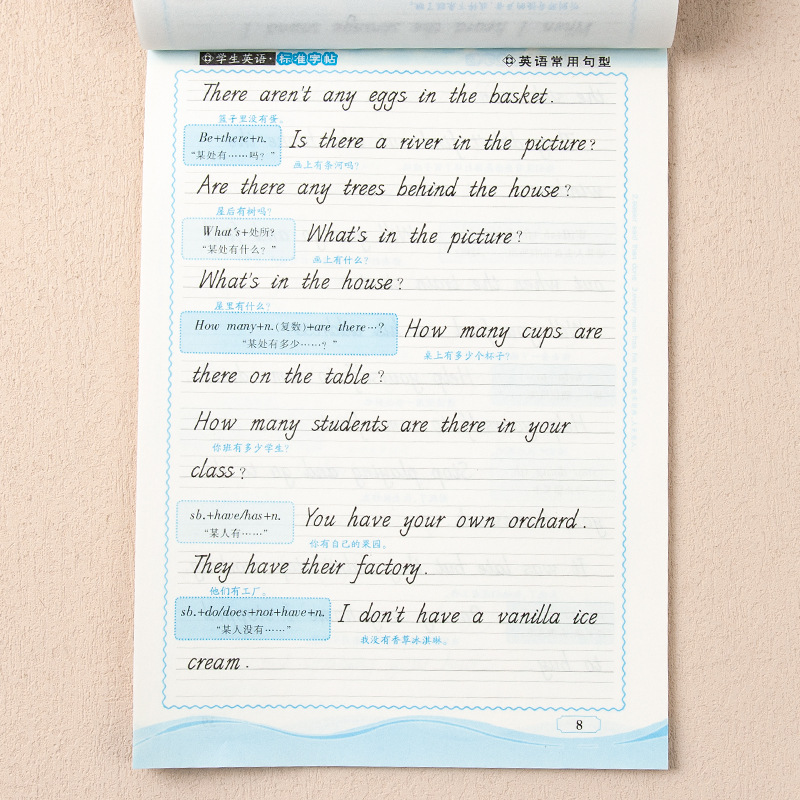 学生英语·标准字帖
英语常用句型
There aren't any eggs in the basket.
篮子里没有蛋。
Be+there+n.
“某处有……吗？”
Is there a river in the picture?
画上有条河吗?
Are there any trees behind the house?
屋后有树吗?
What's+处所?
“某处有什么？”
What's in the picture?
画上有什么?
What's in the house?
屋里有什么?
How many+n.(复数)+are there…?
“某处有多少……？”
How many cups are
桌上有多少个杯子?
there on the table?
How many students are there in your
你班有多少学生?
class?
sb.+have/has+n.
“某人有……”
You have your own orchard.
你有自己的果园。
They have their factory.
他们有工厂。
sb.+do/does+not+have+n.
“某人没有……”
I don't have a vanilla ice
我没有香草冰淇淋。
cream.
8